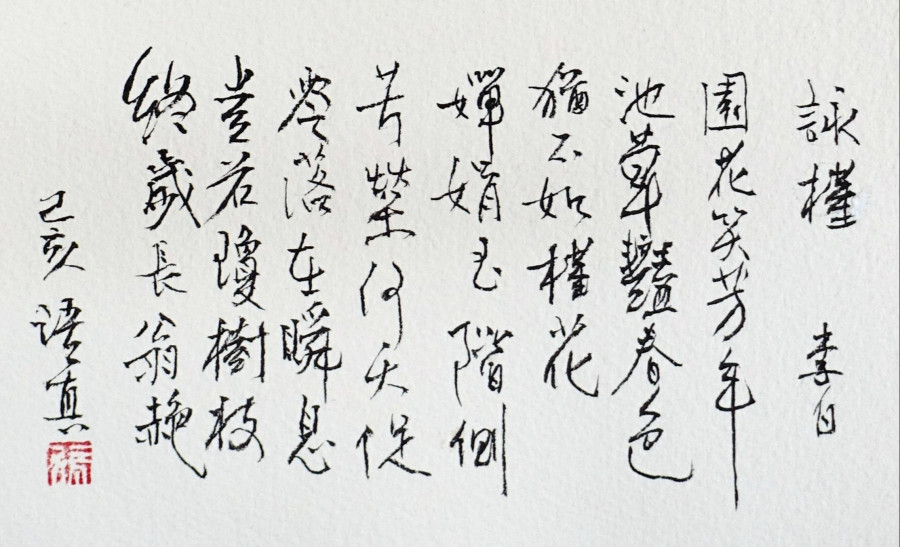 詠槿 李白
園花笑芳年
池草豔春色
猶不如槿花
嬋娟玉階側
芬榮何夭促
零落在瞬息
豈若瓊樹枝
終歲長翕赩
己亥 语真